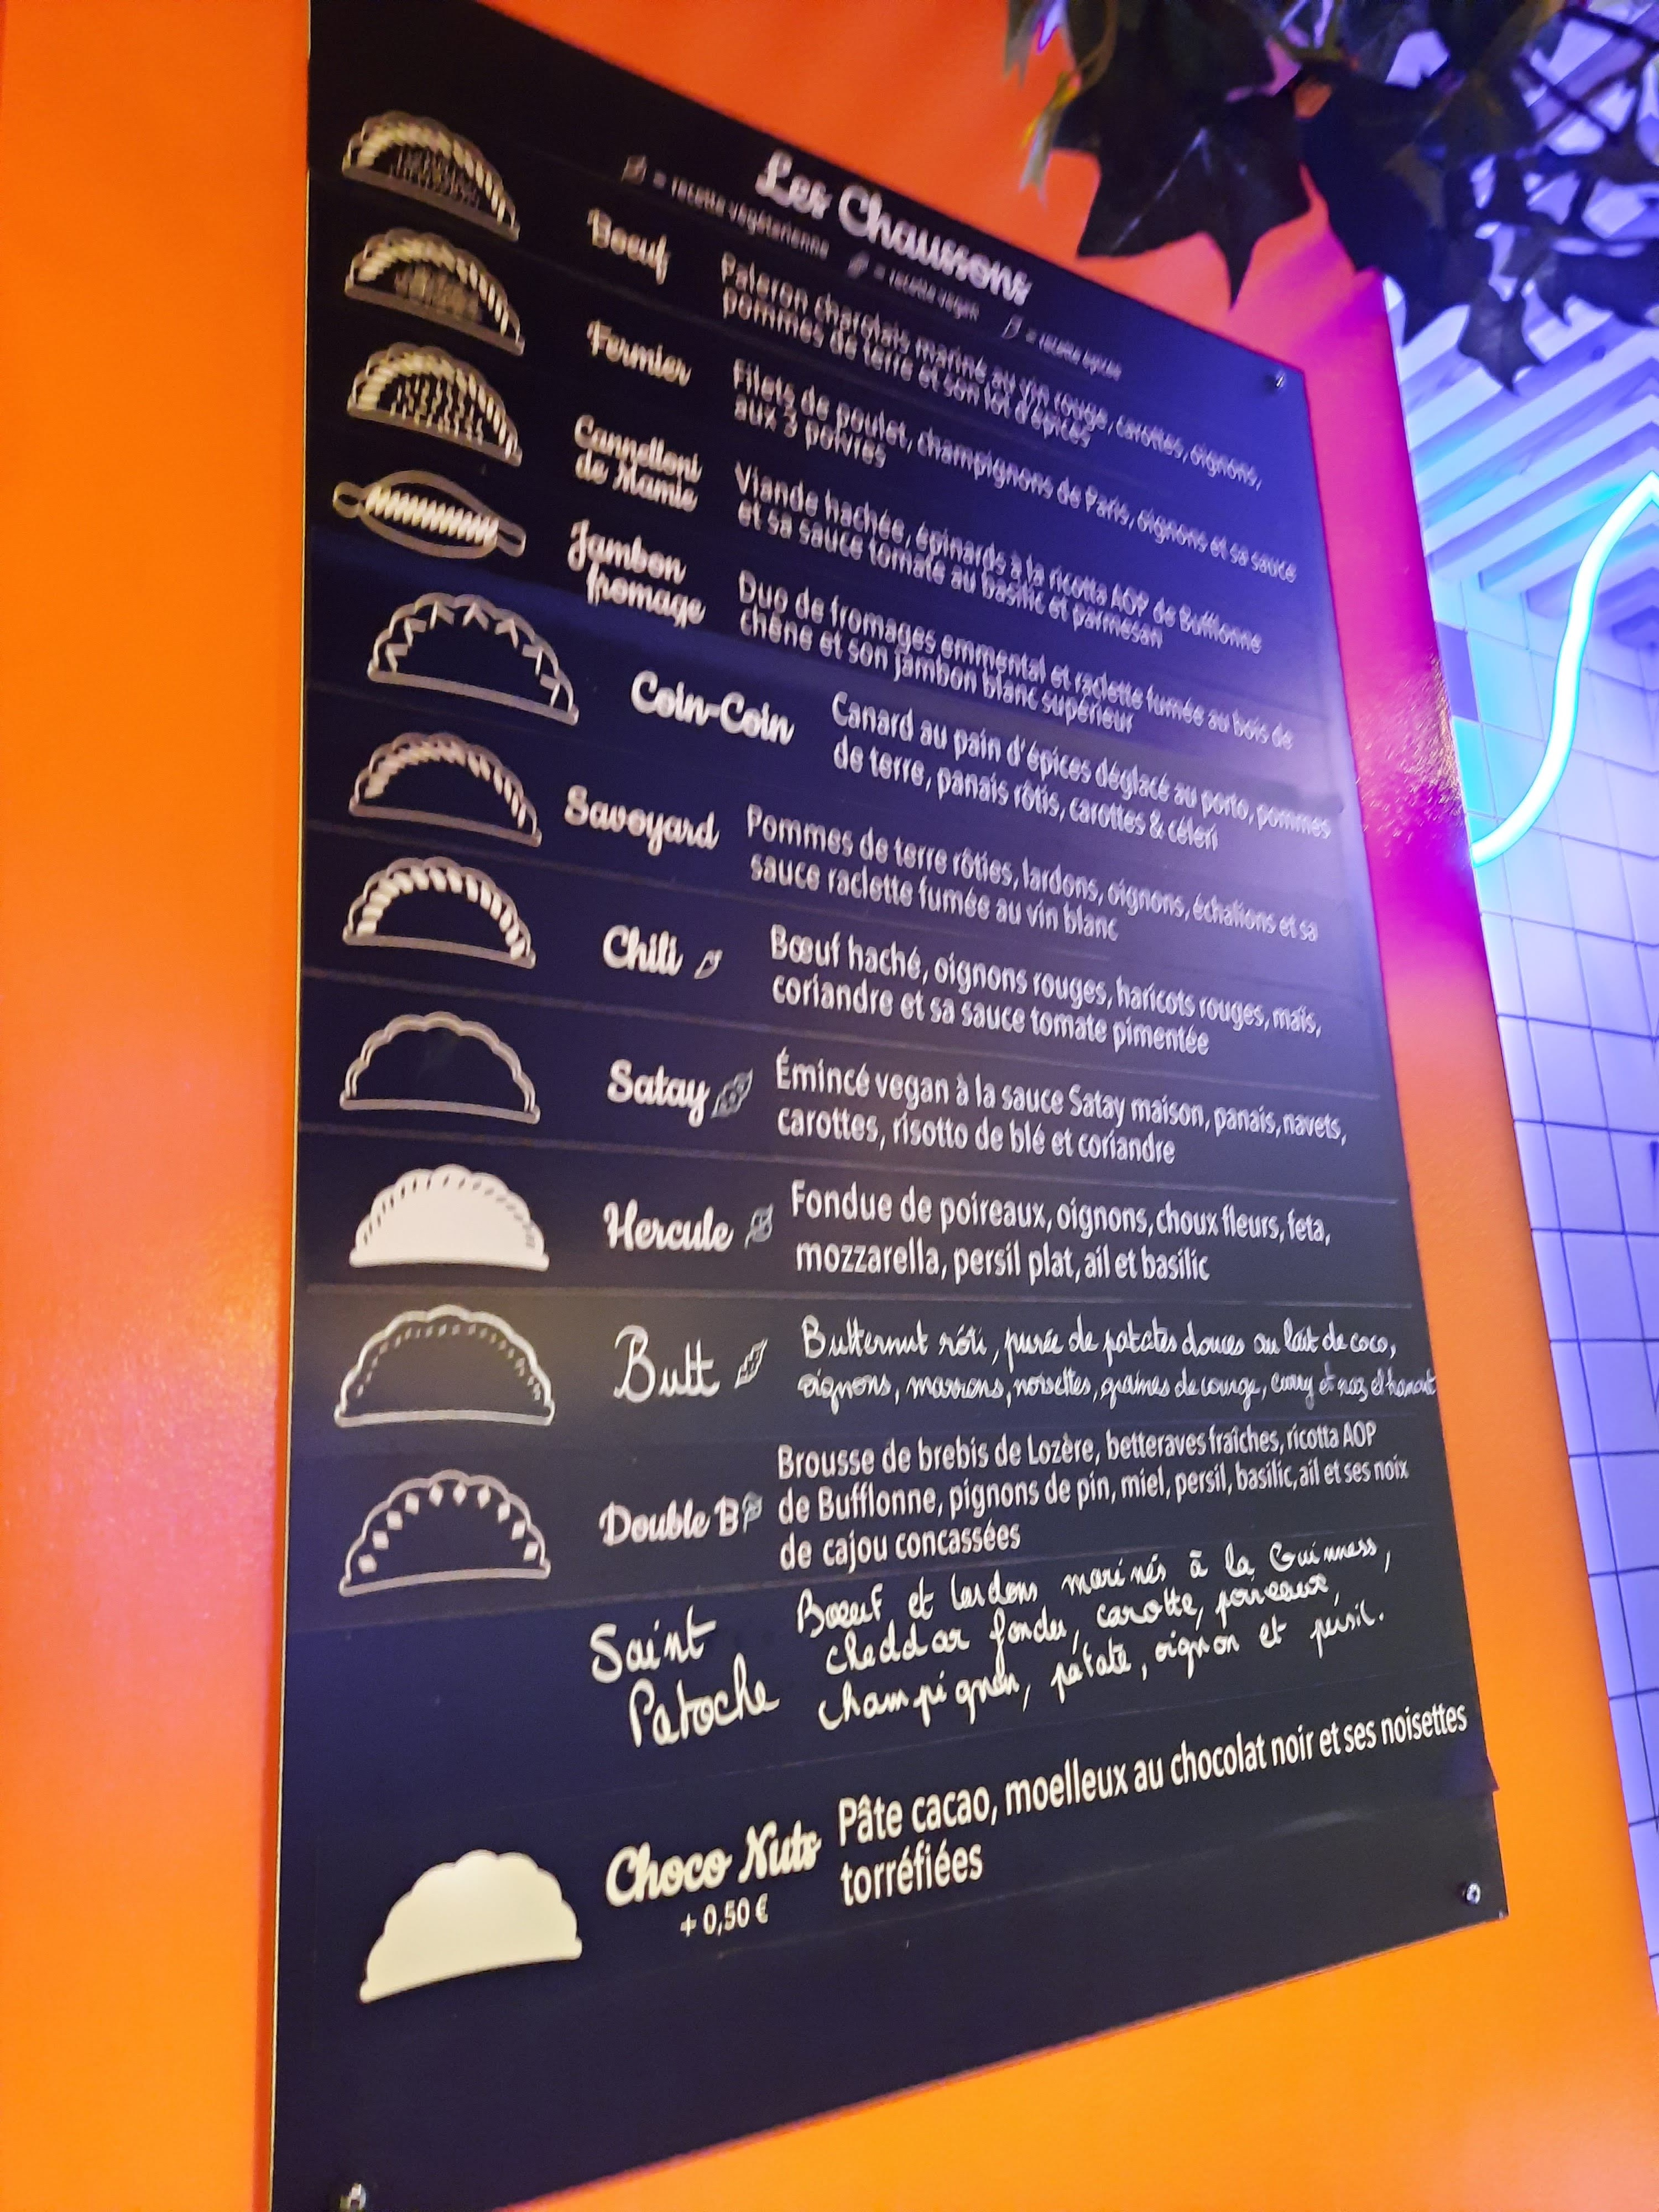 Les Chaussons
= recette végétarienne = recette vegan = recette épicée
Boeuf
Paleron charolais mariné au vin rouge, carottes, oignons,
pommes de terre et son lot d'épices
Fermier
Filets de poulet, champignons de Paris, oignons et sa sauce
aux 3 poivres
Cannelloni
de Mamie
Viande hachée, épinards à la ricotta AOP de Bufflonne
et sa sauce tomate au basilic et parmesan
Jambon
fromage
Duo de fromages emmental et raclette fumée au bois de
chêne et son jambon blanc supérieur
Coin-Coin
Canard au pain d'épices déglacé au porto, pommes
de terre, panais rôtis, carottes & céleri
Savoyard
Pommes de terre rôties, lardons, oignons, échalions et sa
sauce raclette fumée au vin blanc
Chili
Bœuf haché, oignons rouges, haricots rouges, maïs,
coriandre et sa sauce tomate pimentée
Satay
Émincé vegan à la sauce Satay maison, panais, navets,
carottes, risotto de blé et coriandre
Hercule
Fondue de poireaux, oignons, choux fleurs, feta,
mozzarella, persil plat, ail et basilic
Butt
Butternut rôti, purée de patates douces au lait de coco,
oignons, marrons, noisettes, graines de courge, curry et raz el hanout
Double B
Brousse de brebis de Lozère, betteraves fraîches, ricotta AOP
de Bufflonne, pignons de pin, miel, persil, basilic, ail et ses noix
de cajou concassées
Saint
Patoche
Boeuf et lardons marinés à la Guinness,
cheddar fondu, carotte, poireaux,
champignon, patate, oignon et persil.
Choco Nuts
+ 0,50 €
Pâte cacao, moelleux au chocolat noir et ses noisettes
torréfiées